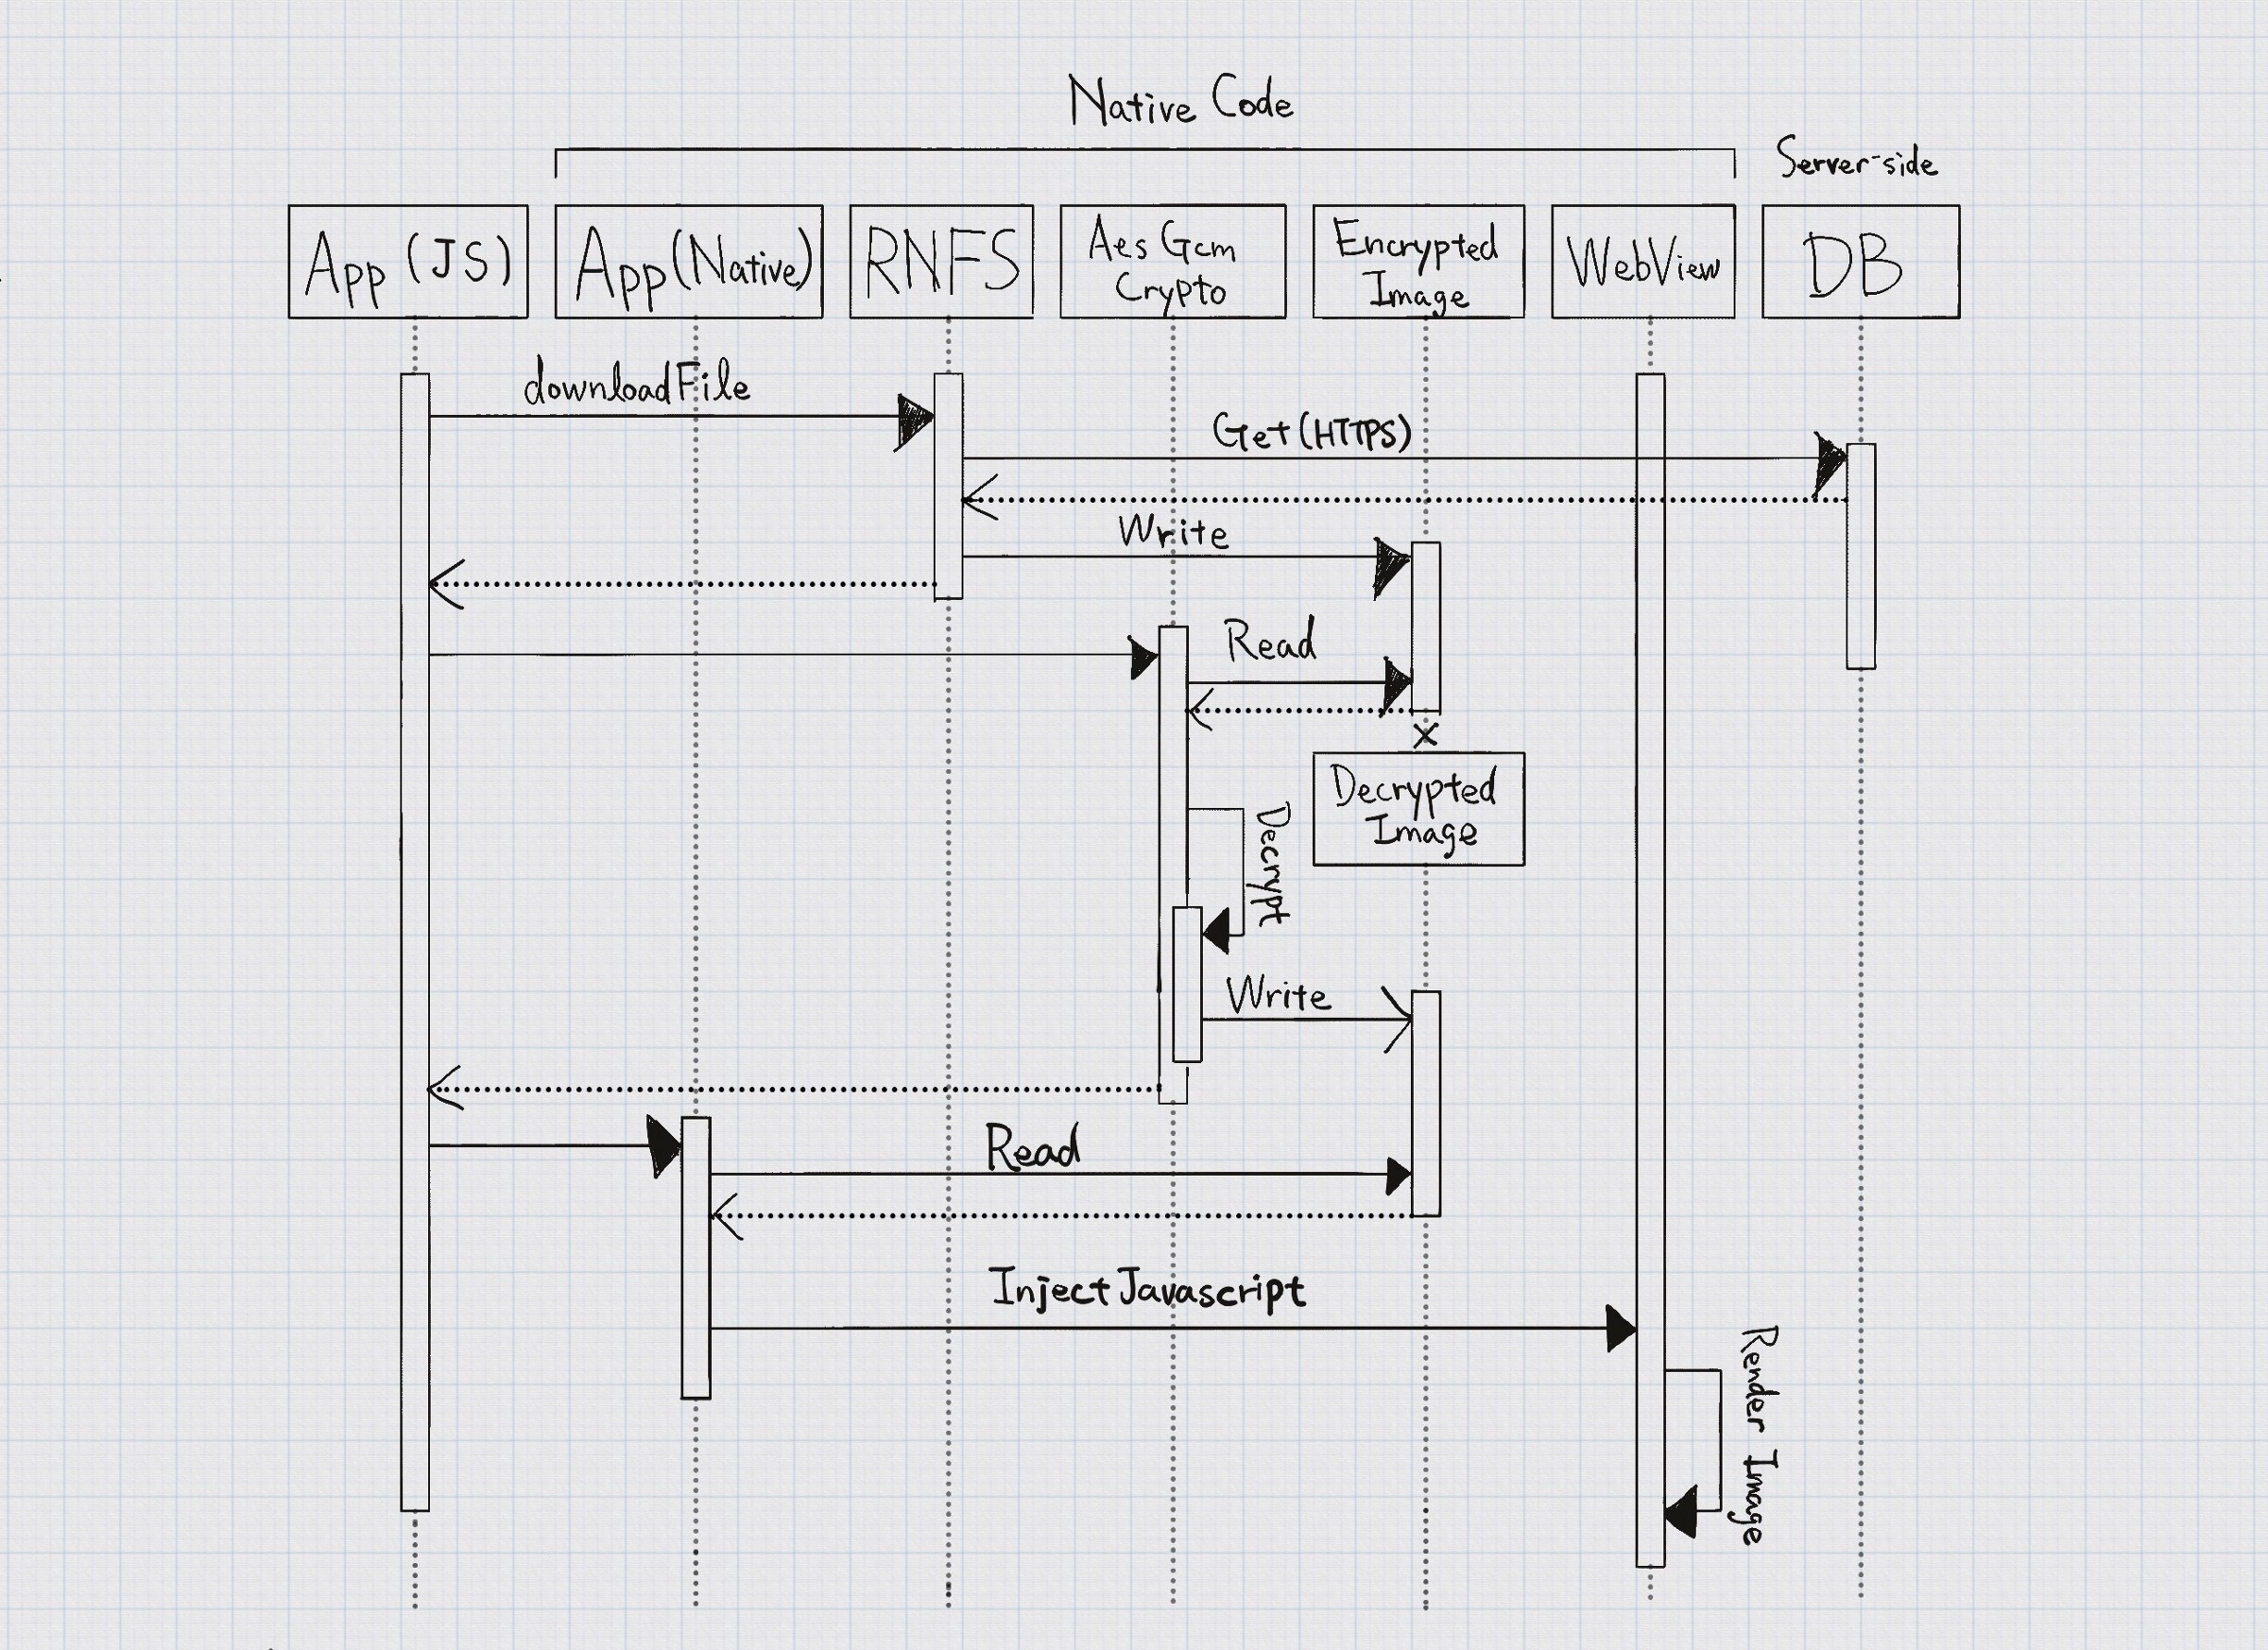 Native Code
Server-side
App (JS)
App (Native)
RNFS
Aes Gcm
Crypto
Encrypted
Image
WebView
DB
downloadFile
Get (HTTPS)
Write
Read
Decrypted
Image
Decrypt
Write
Read
Inject Javascript
Render Image